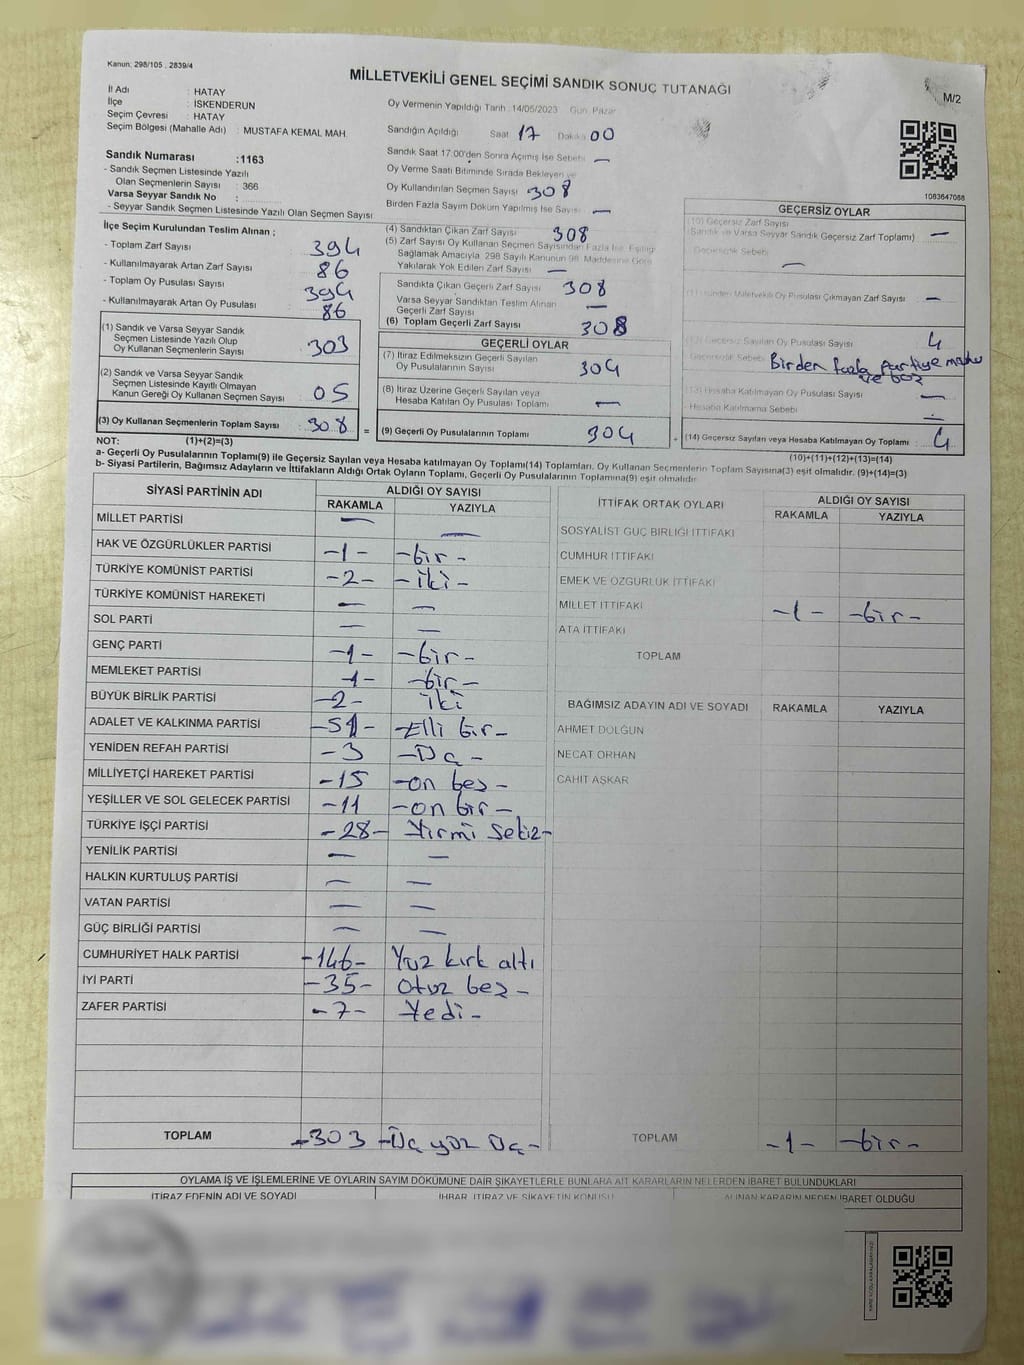 Kanun: 298/105 , 2839/4
MİLLETVEKİLİ GENEL SEÇİMİ SANDIK SONUÇ TUTANAĞI
M/2
İl Adı : HATAY
İlçe : İSKENDERUN
Seçim Çevresi : HATAY
Seçim Bölgesi (Mahalle Adı) : MUSTAFA KEMAL MAH.
Oy Vermenin Yapıldığı Tarih 14/05/2023 Gün Pazar
Sandığın Açıldığı Saat 17 Dakika 00
Sandık Saat 17:00'den Sonra Açılmış İse Sebebi —
Oy Verme Saati Bitiminde Sırada Bekleyen ve
Oy Kullandırılan Seçmen Sayısı 308
Birden Fazla Sayım Döküm Yapılmış İse Sayısı —
1083647068
Sandık Numarası :1163
- Sandık Seçmen Listesinde Yazılı
Olan Seçmenlerin Sayısı : 366
Varsa Seyyar Sandık No :
- Seyyar Sandık Seçmen Listesinde Yazılı Olan Seçmen Sayısı
İlçe Seçim Kurulundan Teslim Alınan ;
- Toplam Zarf Sayısı : 394
- Kullanılmayarak Artan Zarf Sayısı : 86
- Toplam Oy Pusulası Sayısı : 394
- Kullanılmayarak Artan Oy Pusulası : 86
(1) Sandık ve Varsa Seyyar Sandık
Seçmen Listesinde Yazılı Olup
Oy Kullanan Seçmenlerin Sayısı : 303
(2) Sandık ve Varsa Seyyar Sandık
Seçmen Listesinde Kayıtlı Olmayan
Kanun Gereği Oy Kullanan Seçmen Sayısı : 05
(3) Oy Kullanan Seçmenlerin Toplam Sayısı : 308
(4) Sandıktan Çıkan Zarf Sayısı 308
(5) Zarf Sayısı Oy Kullanan Seçmen Sayısından Fazla İse, Eşitliği
Sağlamak Amacıyla 298 Sayılı Kanunun 98. Maddesine Göre
Yakılarak Yok Edilen Zarf Sayısı —
Sandıkta Çıkan Geçerli Zarf Sayısı 308
Varsa Seyyar Sandıktan Teslim Alınan
Geçerli Zarf Sayısı —
(6) Toplam Geçerli Zarf Sayısı 308
GEÇERLİ OYLAR
(7) İtiraz Edilmeksizin Geçerli Sayılan
Oy Pusulalarının Sayısı 304
(8) İtiraz Üzerine Geçerli Sayılan veya
Hesaba Katılan Oy Pusulası Toplamı —
= (9) Geçerli Oy Pusulalarının Toplamı 304
GEÇERSİZ OYLAR
(10) Geçersiz Zarf Sayısı
(Sandık ve Varsa Seyyar Sandık Geçersiz Zarf Toplamı) —
Geçersizlik Sebebi —
(11) İçinden Milletvekili Oy Pusulası Çıkmayan Zarf Sayısı —
(12) Geçersiz Sayılan Oy Pusulası Sayısı 4
Geçersizlik Sebebi Birden fazla partiye mühür
ve boz
(13) Hesaba Katılmayan Oy Pusulası Sayısı —
Hesaba Katılmama Sebebi —
+ (14) Geçersiz Sayılan veya Hesaba Katılmayan Oy Toplamı : 4
NOT: (1)+(2)=(3)
(10)+(11)+(12)+(13)=(14)
a- Geçerli Oy Pusulalarının Toplamı(9) ile Geçersiz Sayılan veya Hesaba katılmayan Oy Toplamı(14) Toplamları, Oy Kullanan Seçmenlerin Toplam Sayısına(3) eşit olmalıdır. (9)+(14)=(3)
b- Siyasi Partilerin, Bağımsız Adayların ve İttifakların Aldığı Ortak Oyların Toplamı, Geçerli Oy Pusulalarının Toplamına(9) eşit olmalıdır.
SİYASİ PARTİNİN ADI ALDIĞI OY SAYISI
RAKAMLA YAZIYLA
MİLLET PARTİSİ — —
HAK VE ÖZGÜRLÜKLER PARTİSİ -1- -bir-
TÜRKİYE KOMÜNİST PARTİSİ -2- -iki-
TÜRKİYE KOMÜNİST HAREKETİ — —
SOL PARTİ — —
GENÇ PARTİ -1- -bir-
MEMLEKET PARTİSİ -1- -bir-
BÜYÜK BİRLİK PARTİSİ -2- iki
ADALET VE KALKINMA PARTİSİ -51- -Elli bir-
YENİDEN REFAH PARTİSİ -3 -Üç-
MİLLİYETÇİ HAREKET PARTİSİ -15 -on beş-
YEŞİLLER VE SOL GELECEK PARTİSİ -11 -on bir-
TÜRKİYE İŞÇİ PARTİSİ -28- Yirmi sekiz-
YENİLİK PARTİSİ — —
HALKIN KURTULUŞ PARTİSİ — —
VATAN PARTİSİ — —
GÜÇ BİRLİĞİ PARTİSİ — —
CUMHURİYET HALK PARTİSİ -146- Yüz kırk altı
İYİ PARTİ -35- Otuz beş-
ZAFER PARTİSİ -7- Yedi-
TOPLAM -303 -Üç yüz Üç-
İTTİFAK ORTAK OYLARI ALDIĞI OY SAYISI
RAKAMLA YAZIYLA
SOSYALİST GÜÇ BİRLİĞİ İTTİFAKI
CUMHUR İTTİFAKI
EMEK VE ÖZGÜRLÜK İTTİFAKI
MİLLET İTTİFAKI -1- -bir-
ATA İTTİFAKI
TOPLAM
BAĞIMSIZ ADAYIN ADI VE SOYADI RAKAMLA YAZIYLA
AHMET DOLĞUN
NECAT ORHAN
CAHİT AŞKAR
TOPLAM -1- -bir-
OYLAMA İŞ VE İŞLEMLERİNE VE OYLARIN SAYIM DÖKÜMÜNE DAİR ŞİKAYETLERLE BUNLARA AİT KARARLARIN NELERDEN İBARET BULUNDUKLARI
İTİRAZ EDENİN ADI VE SOYADI İHBAR, İTİRAZ VE ŞİKAYETİN KONUSU ALINAN KARARIN NEDEN İBARET OLDUĞU